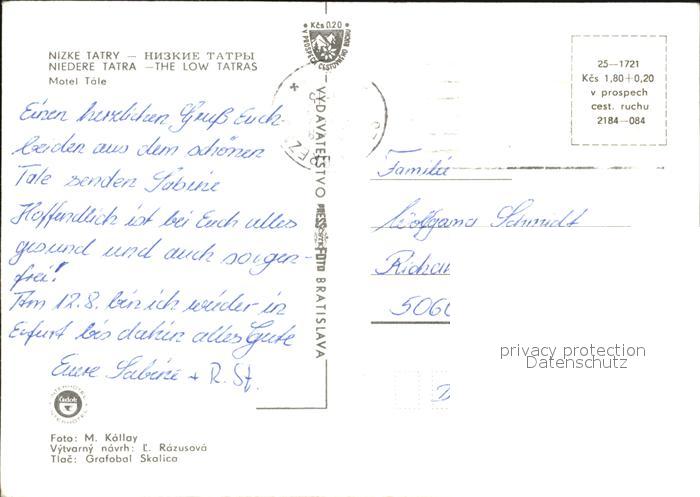 NÍZKE TATRY — НИЗКИЕ ТАТРЫ
NIEDERE TATRA —THE LOW TATRAS
Motel Tále
Einen herzlichen Gruß Euch
beiden aus dem schönen
Tale senden Sabine
Hoffendlich ist bei Euch alles
gesund und auch sorgen-
frei!
Am 12.8. bin ich wieder in
Erfurt bis dahin alles Gute
Euere Sabine + R. St.
Foto: M. Kállay
Výtvarný návrh: Ľ. Rázusová
Tlač: Grafobal Skalica
Kčs 0,20
V PROSPECH CESTOVNÉHO RUCHU
VYDAVATEĽSTVO PRESSFOTO BRATISLAVA
25—1721
Kčs 1,80+0,20
v prospech
cest. ruchu
2184—084
Familie
Wolfgang Schmidt
Richar
506
D
privacy protection
Datenschutz